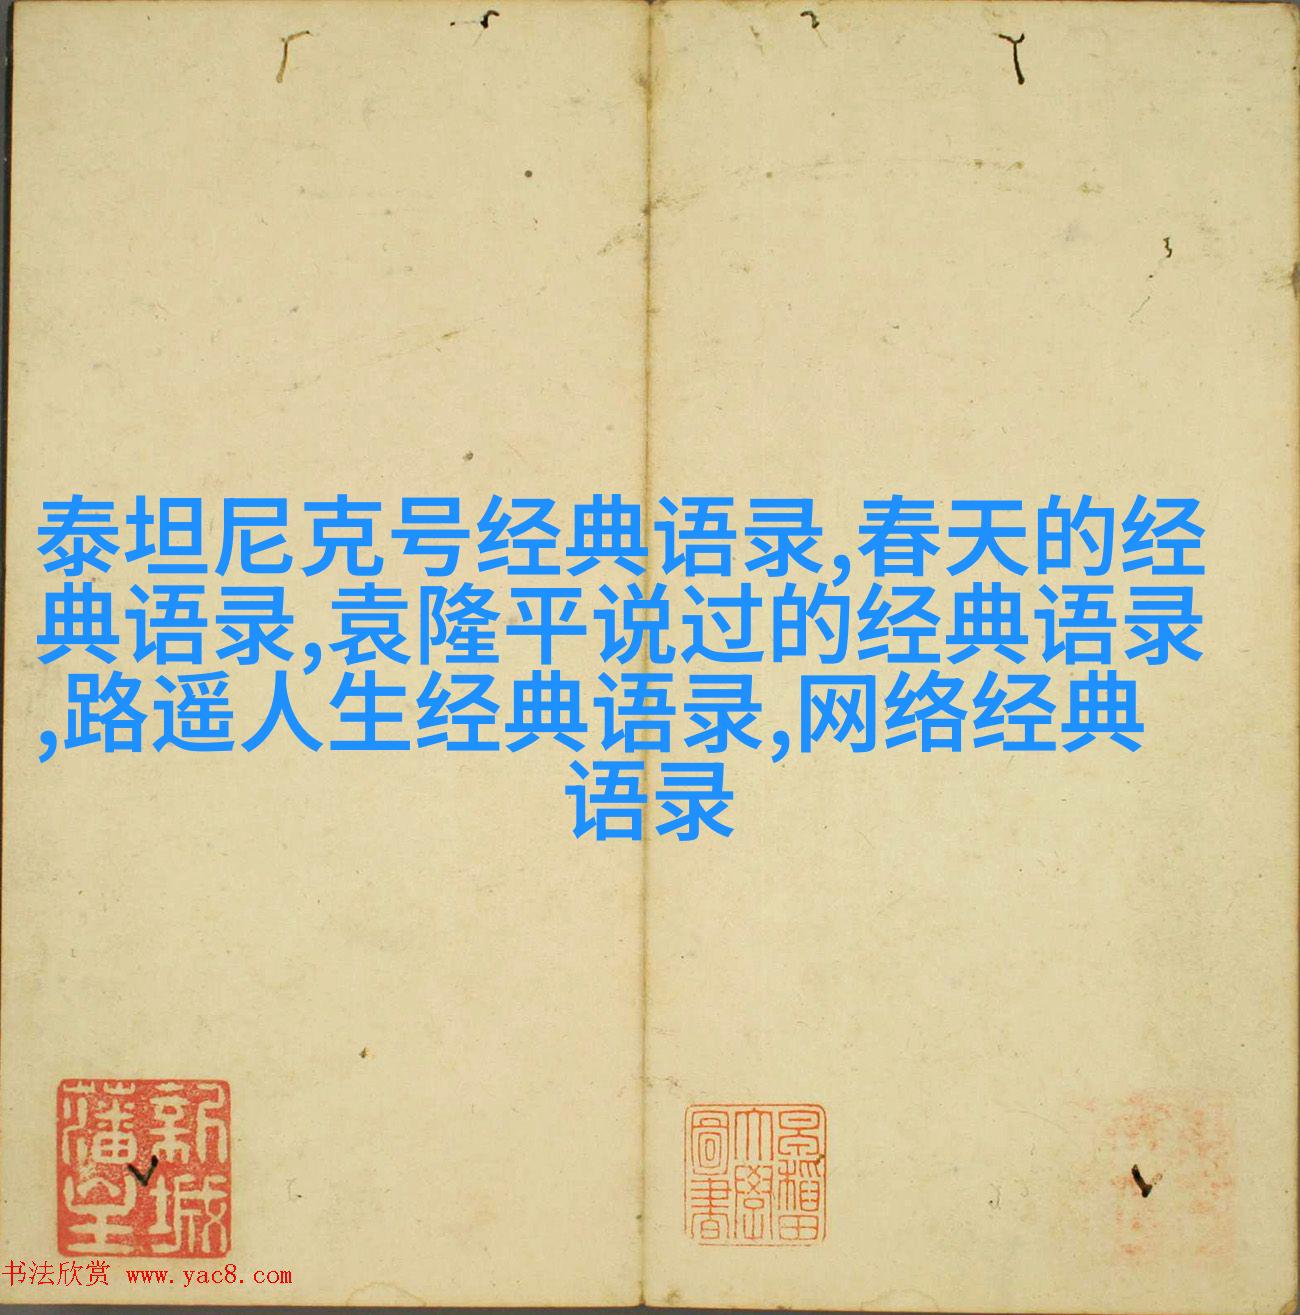 泰坦尼克号经典语录,春天的经
典语录,袁隆平说过的经典语录
,路遥人生经典语录,网络经典
语录
新城
藩生
早稻田
大学
图书
书法欣赏 www.yac8.com